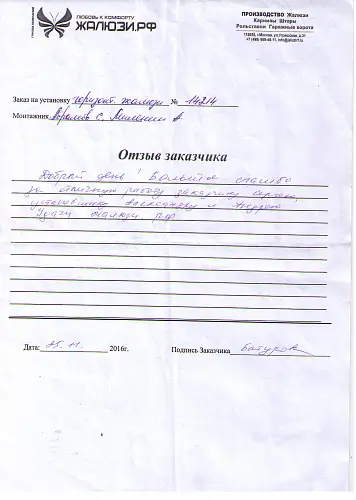 ЛЮБОВЬ К КОМФОРТУ
ЖАЛЮЗИ.РФ
ПРОИЗВОДСТВО Жалюзи
Карнизы Шторы
Рольставни Гаражные ворота
Заказ на установку горизонт. жалюзи № 14214
Монтажник Абрамов С, А
Отзыв заказчика
Добрый день! Большое спасибо
за отличную работу Сергею,
Александру и Андрею
Удачи жалюзи.рф
Дата: 25.11. 2016г.
Подпись Заказчика Батуров